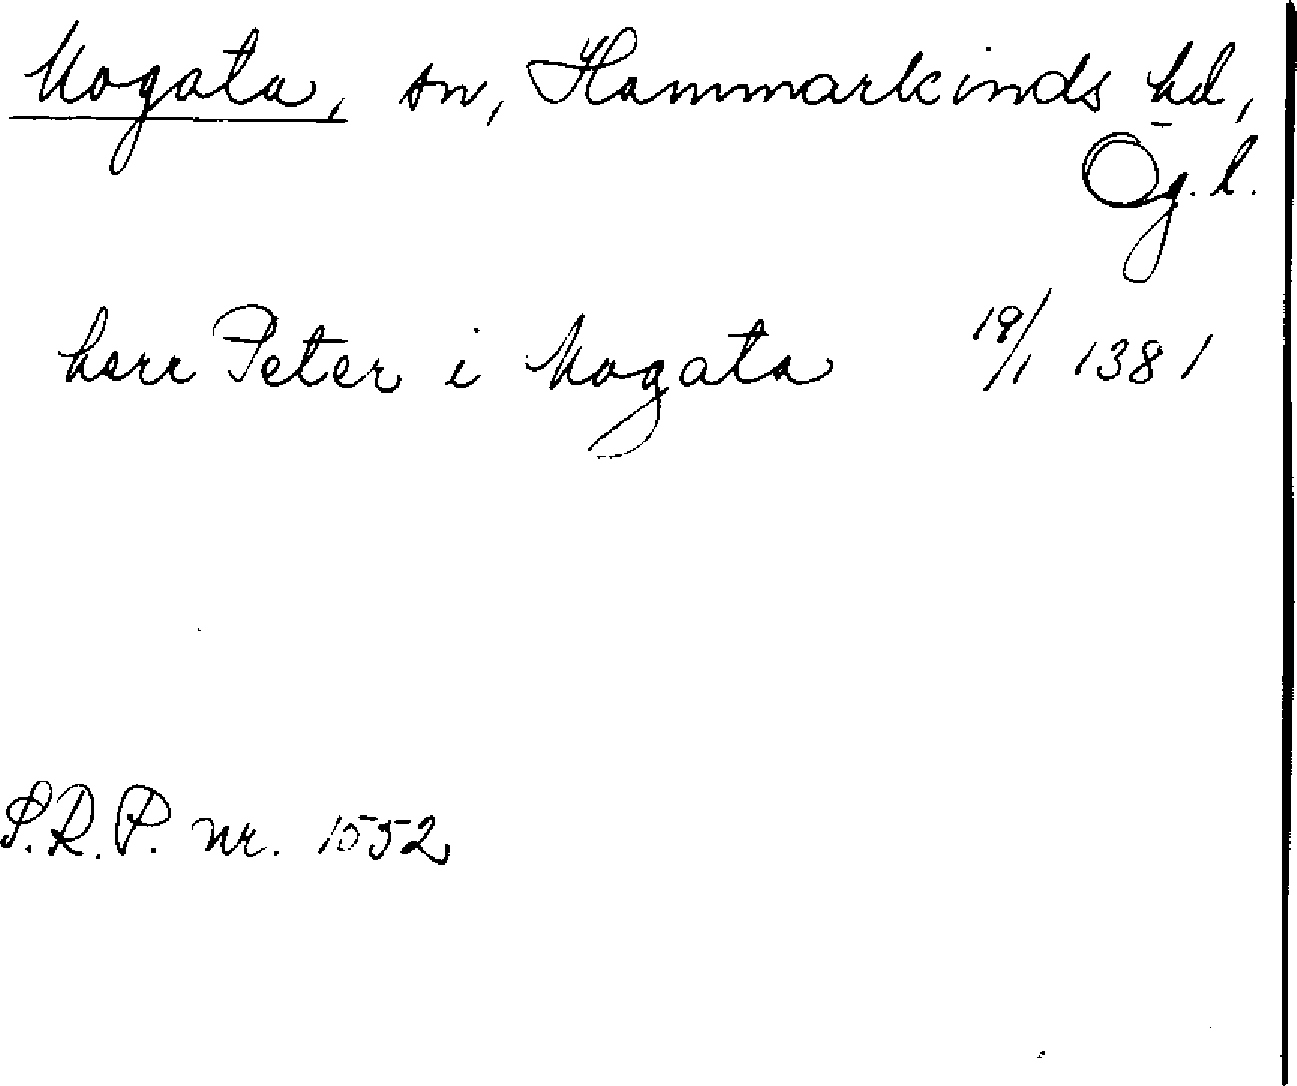 Mogata, sn, Hammarkinds hd,
Ög. l.
herr Peter i Mogata 19/1 1381
S.R.P. nr. 1552